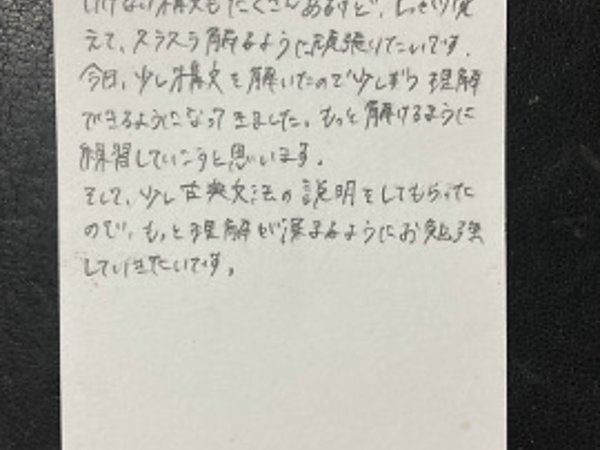 けない構文もたくさんあるけど、しっかり覚
えて、スラスラ解るように頑張りたいです。
今日、少し構文を解いたので少しずつ理解
できるようになってきました。もっと解けるように
練習していこうと思います。
そして、少し古典文法の説明をしてもらったの
ので、もっと理解が深まるようにお勉強
していきたいです。